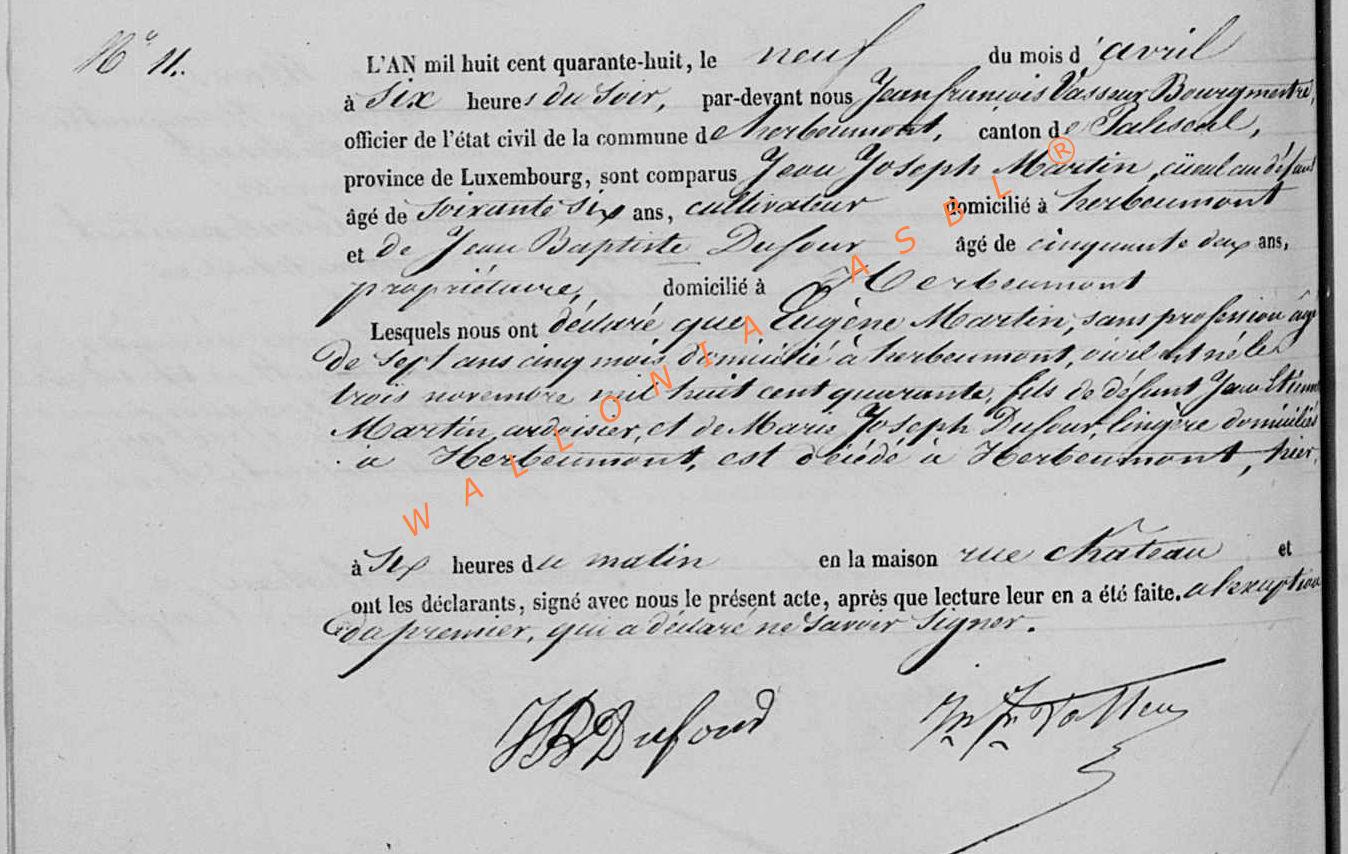 N° 11.
L'AN mil huit cent quarante-huit, le neuf du mois d'avril
à Six heures du Soir, par-devant nous Jean francois Vasseur Bourgmestre,
officier de l'état civil de la commune de herbeumont, canton de Paliseul,
province de Luxembourg, sont comparus Jean Joseph Martin,
âgé de Soixante Six ans, cultivateur domicilié à herbeumont
et de Jean Baptiste Dufour âgé de cinquante deux ans,
propriétaire, domicilié à Herbeumont
Lesquels nous ont déclaré que Eugène Martin, sans profession âgé
de Sept ans cinq mois, domicilié à herbeumont, né le
trois novembre mil huit cent quarante, fils de défunt Jean Etienne
Martin, ardoisier, et de Marie Joseph Dufour, lingère domiciliés
à Herbeumont, est décédé à Herbeumont, hier,
à Six heures du matin en la maison rue château et
ont les déclarants, signé avec nous le présent acte, après que lecture leur en a été faite. a l'exception
du premier, qui a déclaré ne Savoir Signer.
JB Dufour
WALLONIA ASBL ®